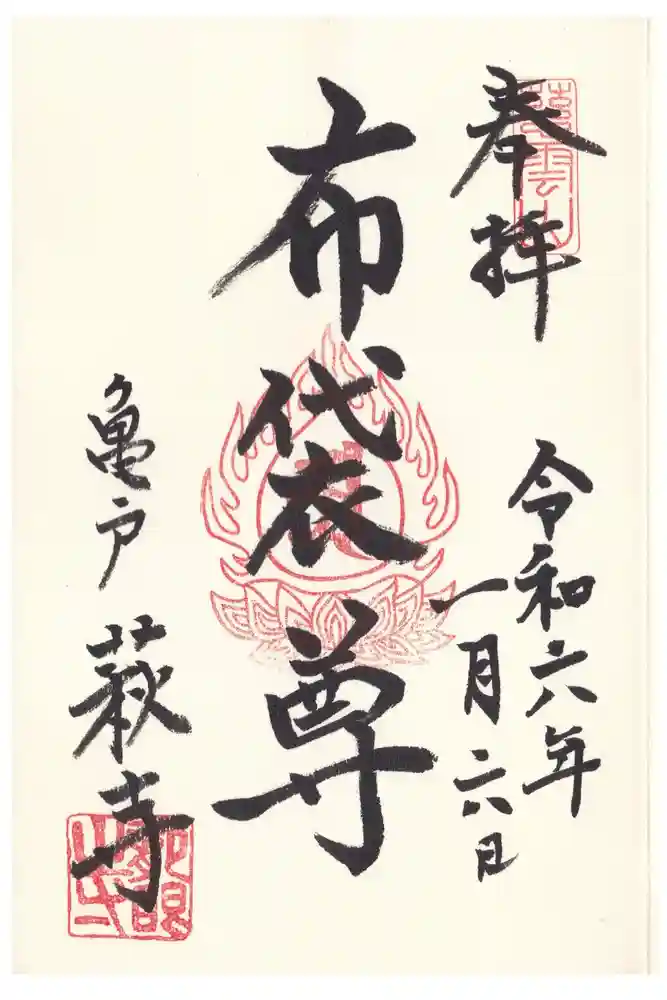 奉拝
令和六年
一月六日
布袋尊
亀戸 萩寺